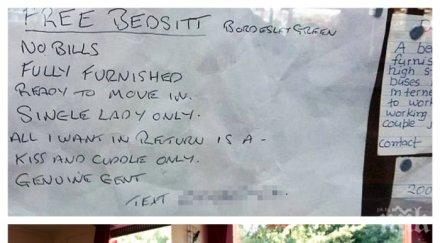 FREE BEDSITT BORDESLEY GREEN
NO BILLS
FULLY FURNISHED
READY TO MOVE IN.
SINGLE LADY ONLY.
ALL I WANT IN RETURN IS A -
KISS AND CUDDLE ONLY.
GENUINE GENT
TEXT
A be
furnis
high s
buses
Interne
to work
working
couple
contact
200